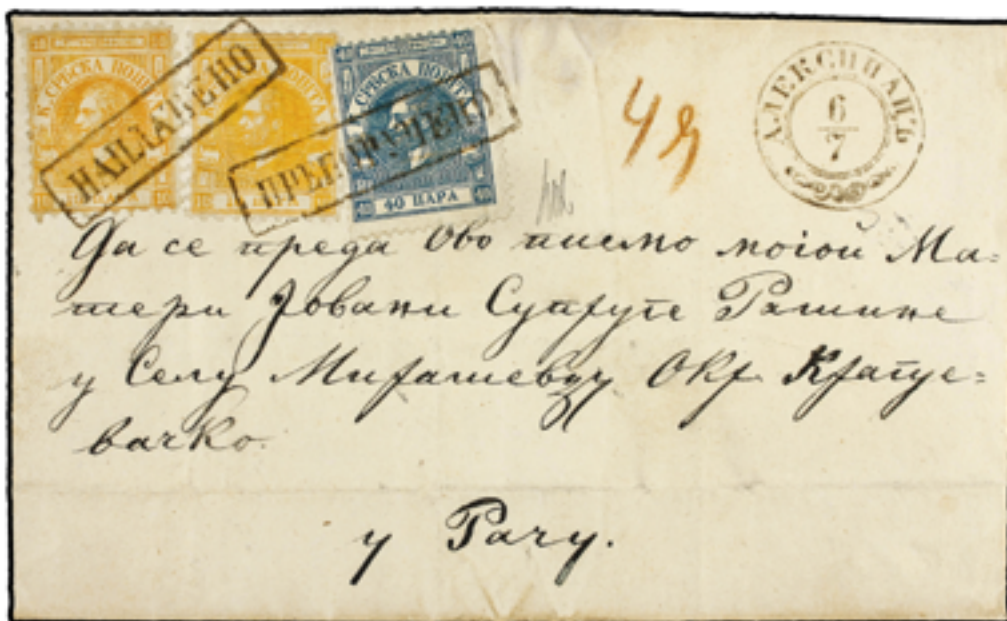 К. СРБСКА ПОШТА
НАПЛАЋЕНО
К. СРБСКА ПОШТА
ПРЕПОРУЧЕНО
К. СРБСКА ПОШТА
40 ПАРА
АЛЕКСИНАЦЪ
6
7
Да се преда Ово писмо моіой Ма=
тери Јовани Супруге Рашине
у Селу Мирашевцу Окр Крагуе=
вачко.
у Рачу.